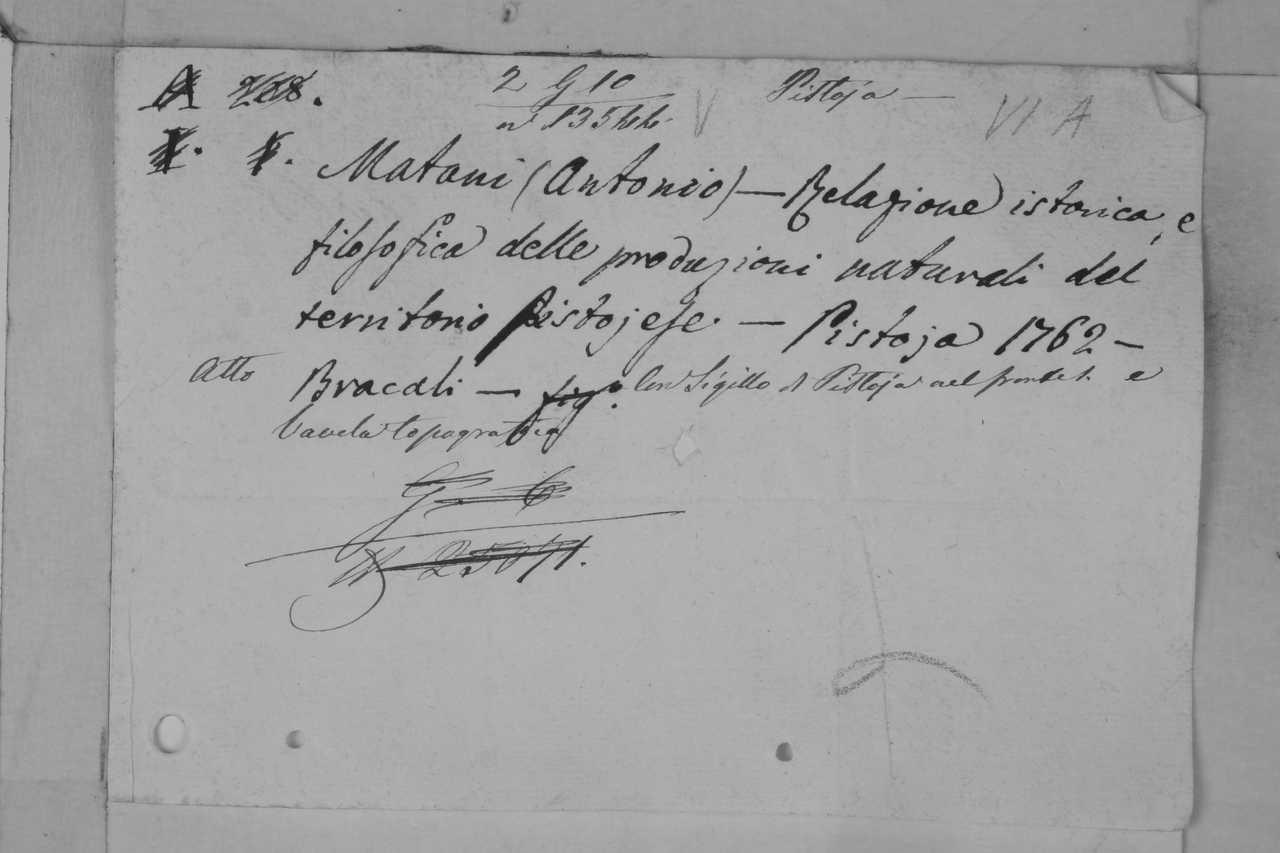 2 G 10 Pistoja —
n° 13544 V VI A
Matani (Antonio) — Relazione istorica, e
filosofica delle produzioni naturali del
territorio Pistojese. — Pistoja 1762 —
Atto Bracali — fig° Con Sigillo di Pistoja nel frontesp. e
tavola topografica
G 6
N 25071.